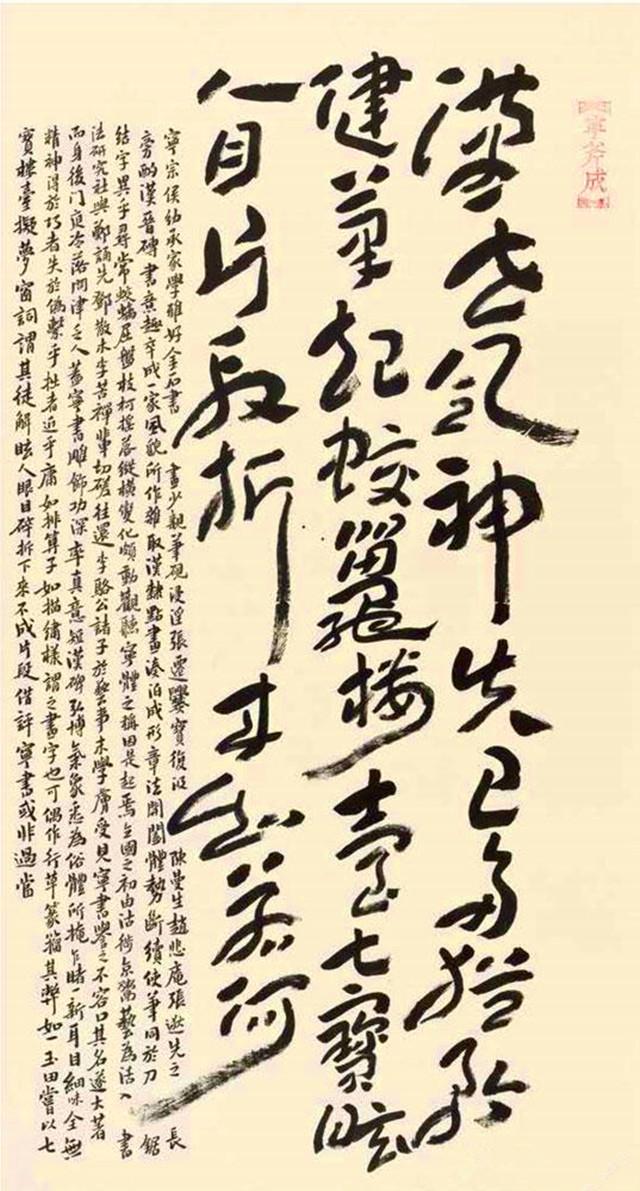 寧斧成
漢世氣神失已多猶矜
健筆起蛟鼉樓臺七寶眩
人目片段折來知若何
寧宗侯幼承家學雅好金石書畫少親筆硯浸淫張遷爨寶復汲陳曼生趙悲庵張遜先之長
旁酌漢晉磚書意趣卒成一家風貌所作雜取漢隸點畫湊泊成形章法開闔體勢斷續使筆同於刀鋸
結字異乎尋常蛟螭屈盤枝柯搖落縱橫變化頗動觀聽寧體之稱因是起焉立國之初由沽徙京鬻藝為活入書
法研究社與鄭誦先鄧散木李苦禪輩切磋往還李駱公諸子於藝事末學膚受見寧書譽之不容口其名遂大著
而身後門庭冷落問津乏人蓋寧書雕飾功深率真意短漢碑弘博氣象悉為俗體所掩乍睹一新耳目細味全無
精神得於巧者失於偽繫乎拙者近乎庸如排算子如描繡樣謂之畫字也可偶作行草篆籀其弊如一玉田嘗以七
寶樓臺擬夢窗詞謂其徒解眩人眼目碎拆下來不成片段借評寧書或非過當